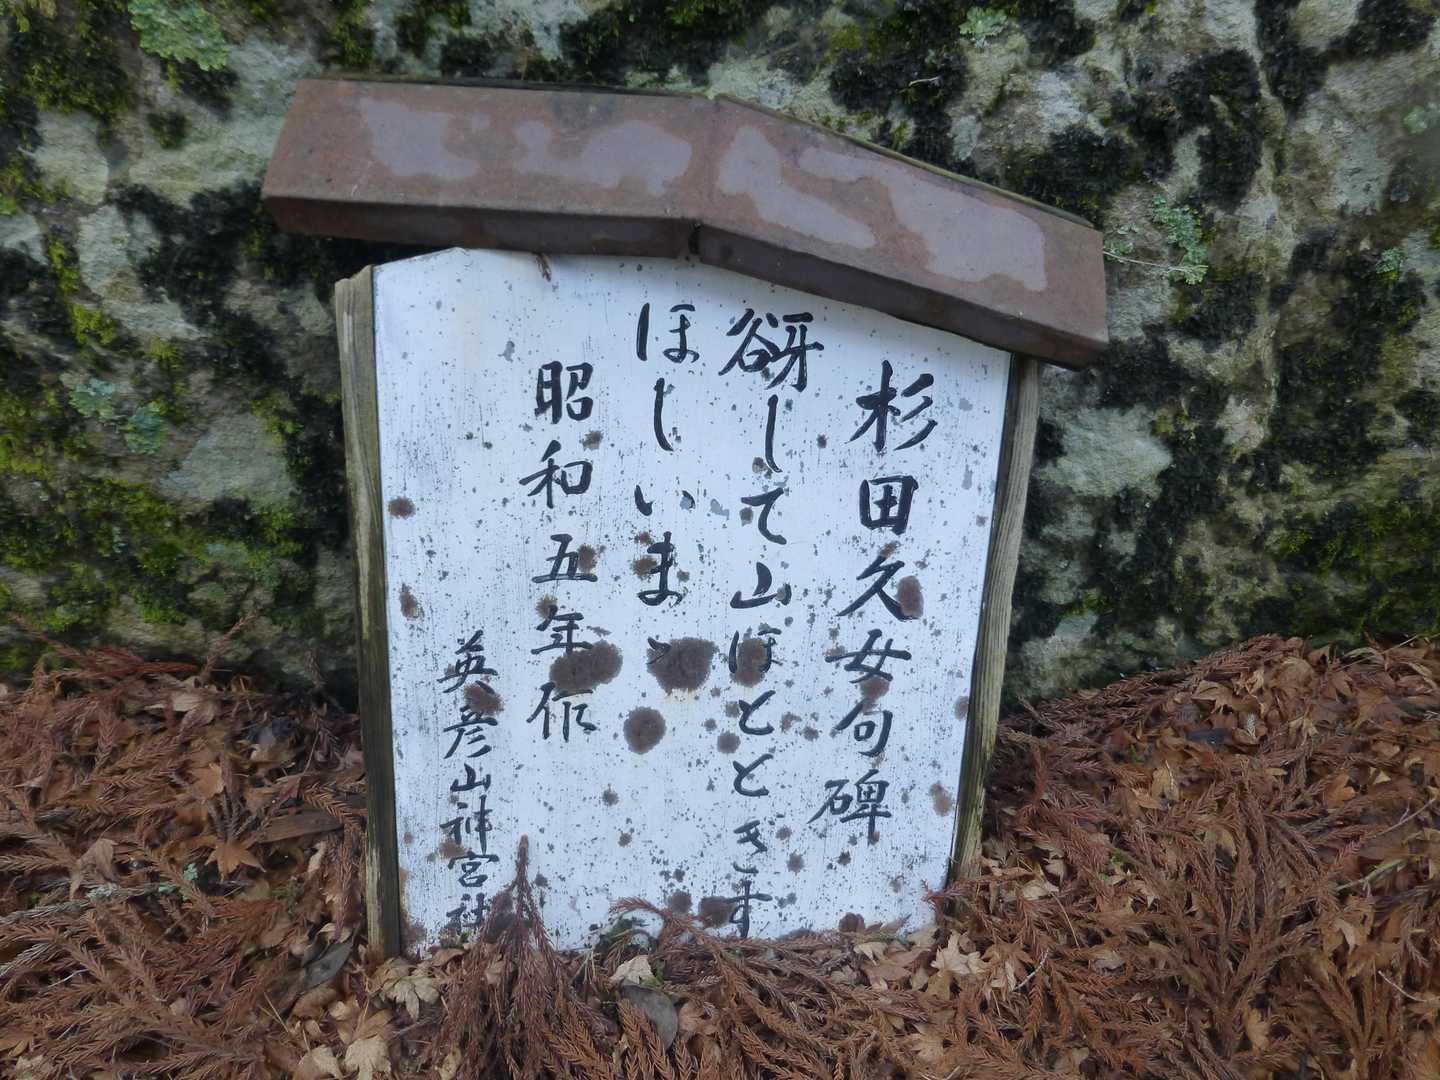 杉田久女句碑
谺して山ほとゝぎす
ほしいまゝ
昭和五年作
英彦山神宮社